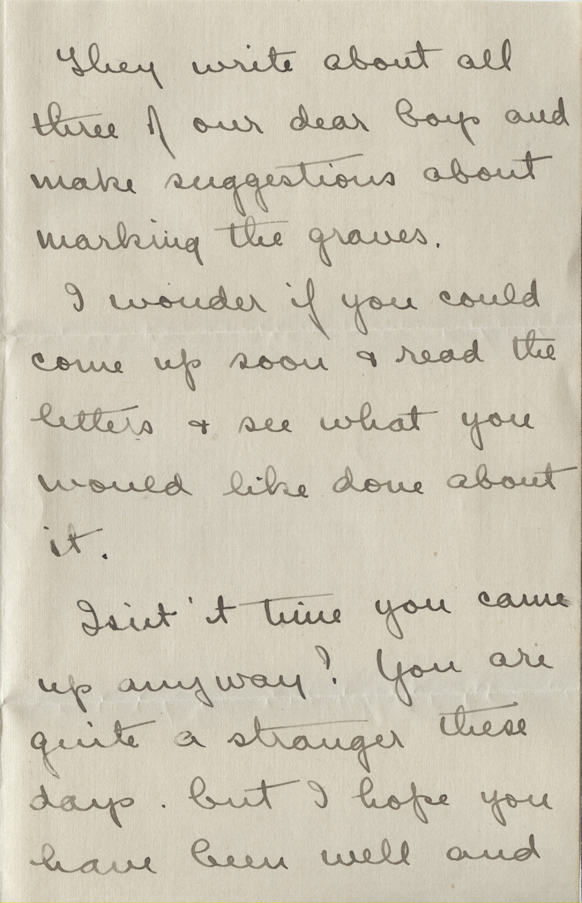 They write about all
three of our dear boys and
make suggestions about
marking the graves.
I wonder if you could
come up soon & read the
letters & see what you
would like done about
it.
Isn't 't time you came
up anyway? You are
quite a stranger these
days. but I hope you
have been well and